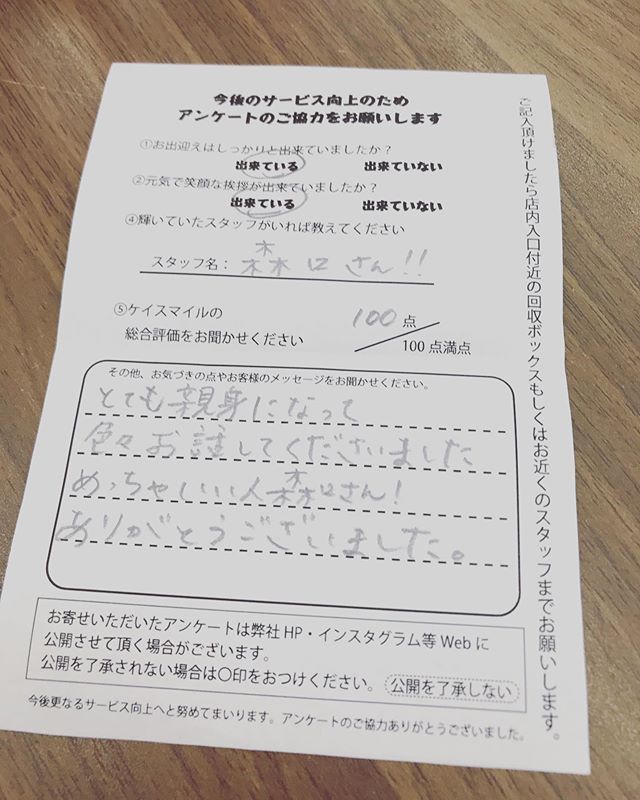 今後のサービス向上のため
アンケートのご協力をお願いします
①お出迎えはしっかりと出来ていましたか？
出来ている 出来ていない
②元気で笑顔な挨拶が出来ていましたか？
出来ている 出来ていない
④輝いていたスタッフがいれば教えてください
スタッフ名： 森口さん!!
⑤ケイスマイルの
総合評価をお聞かせください
100 点
100 点満点
その他、お気づきの点やお客様のメッセージをお聞かせください。
とても親身になって
色々お話してくださいました
めっちゃいい人森口さん!
ありがとうございました。
お寄せいただいたアンケートは弊社 HP・インスタグラム等 Web に
公開させて頂く場合がございます。
公開を了承されない場合は〇印をおつけください。 公開を了承しない
今後更なるサービス向上へと努めてまいります。アンケートのご協力ありがとうございました。
ご記入頂けましたら店内入口付近の回収ボックスもしくはお近くのスタッフまでお願いします。